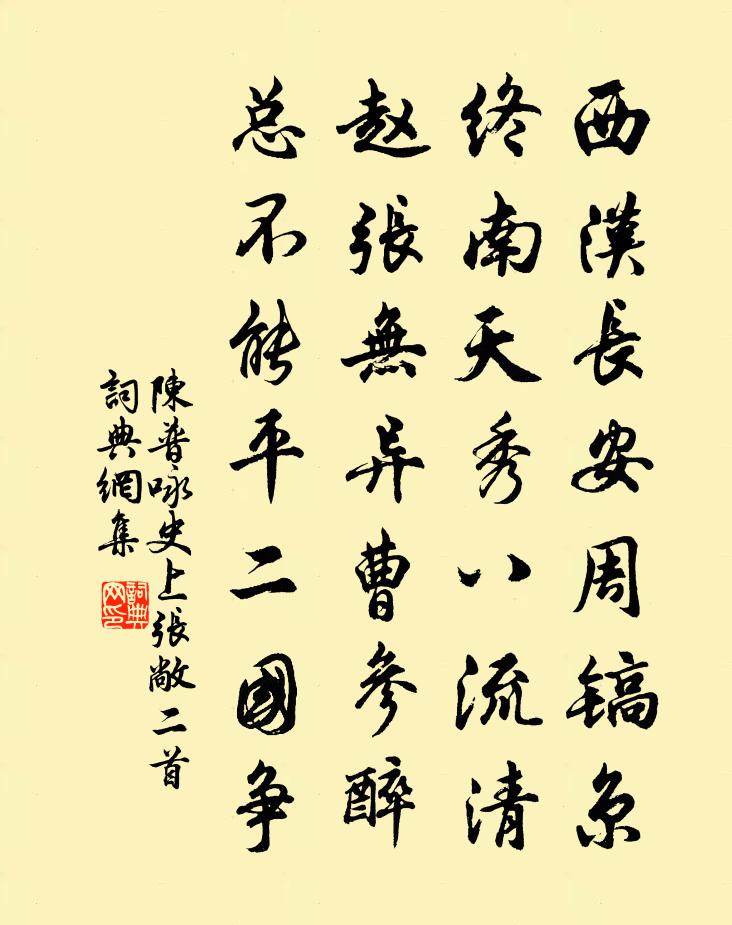 西漢長安周镐京
终南天秀八流清
赵張無异曹參醉
总不能平二國争
陳普咏史上張敞二首
詞典網集
詞典网印